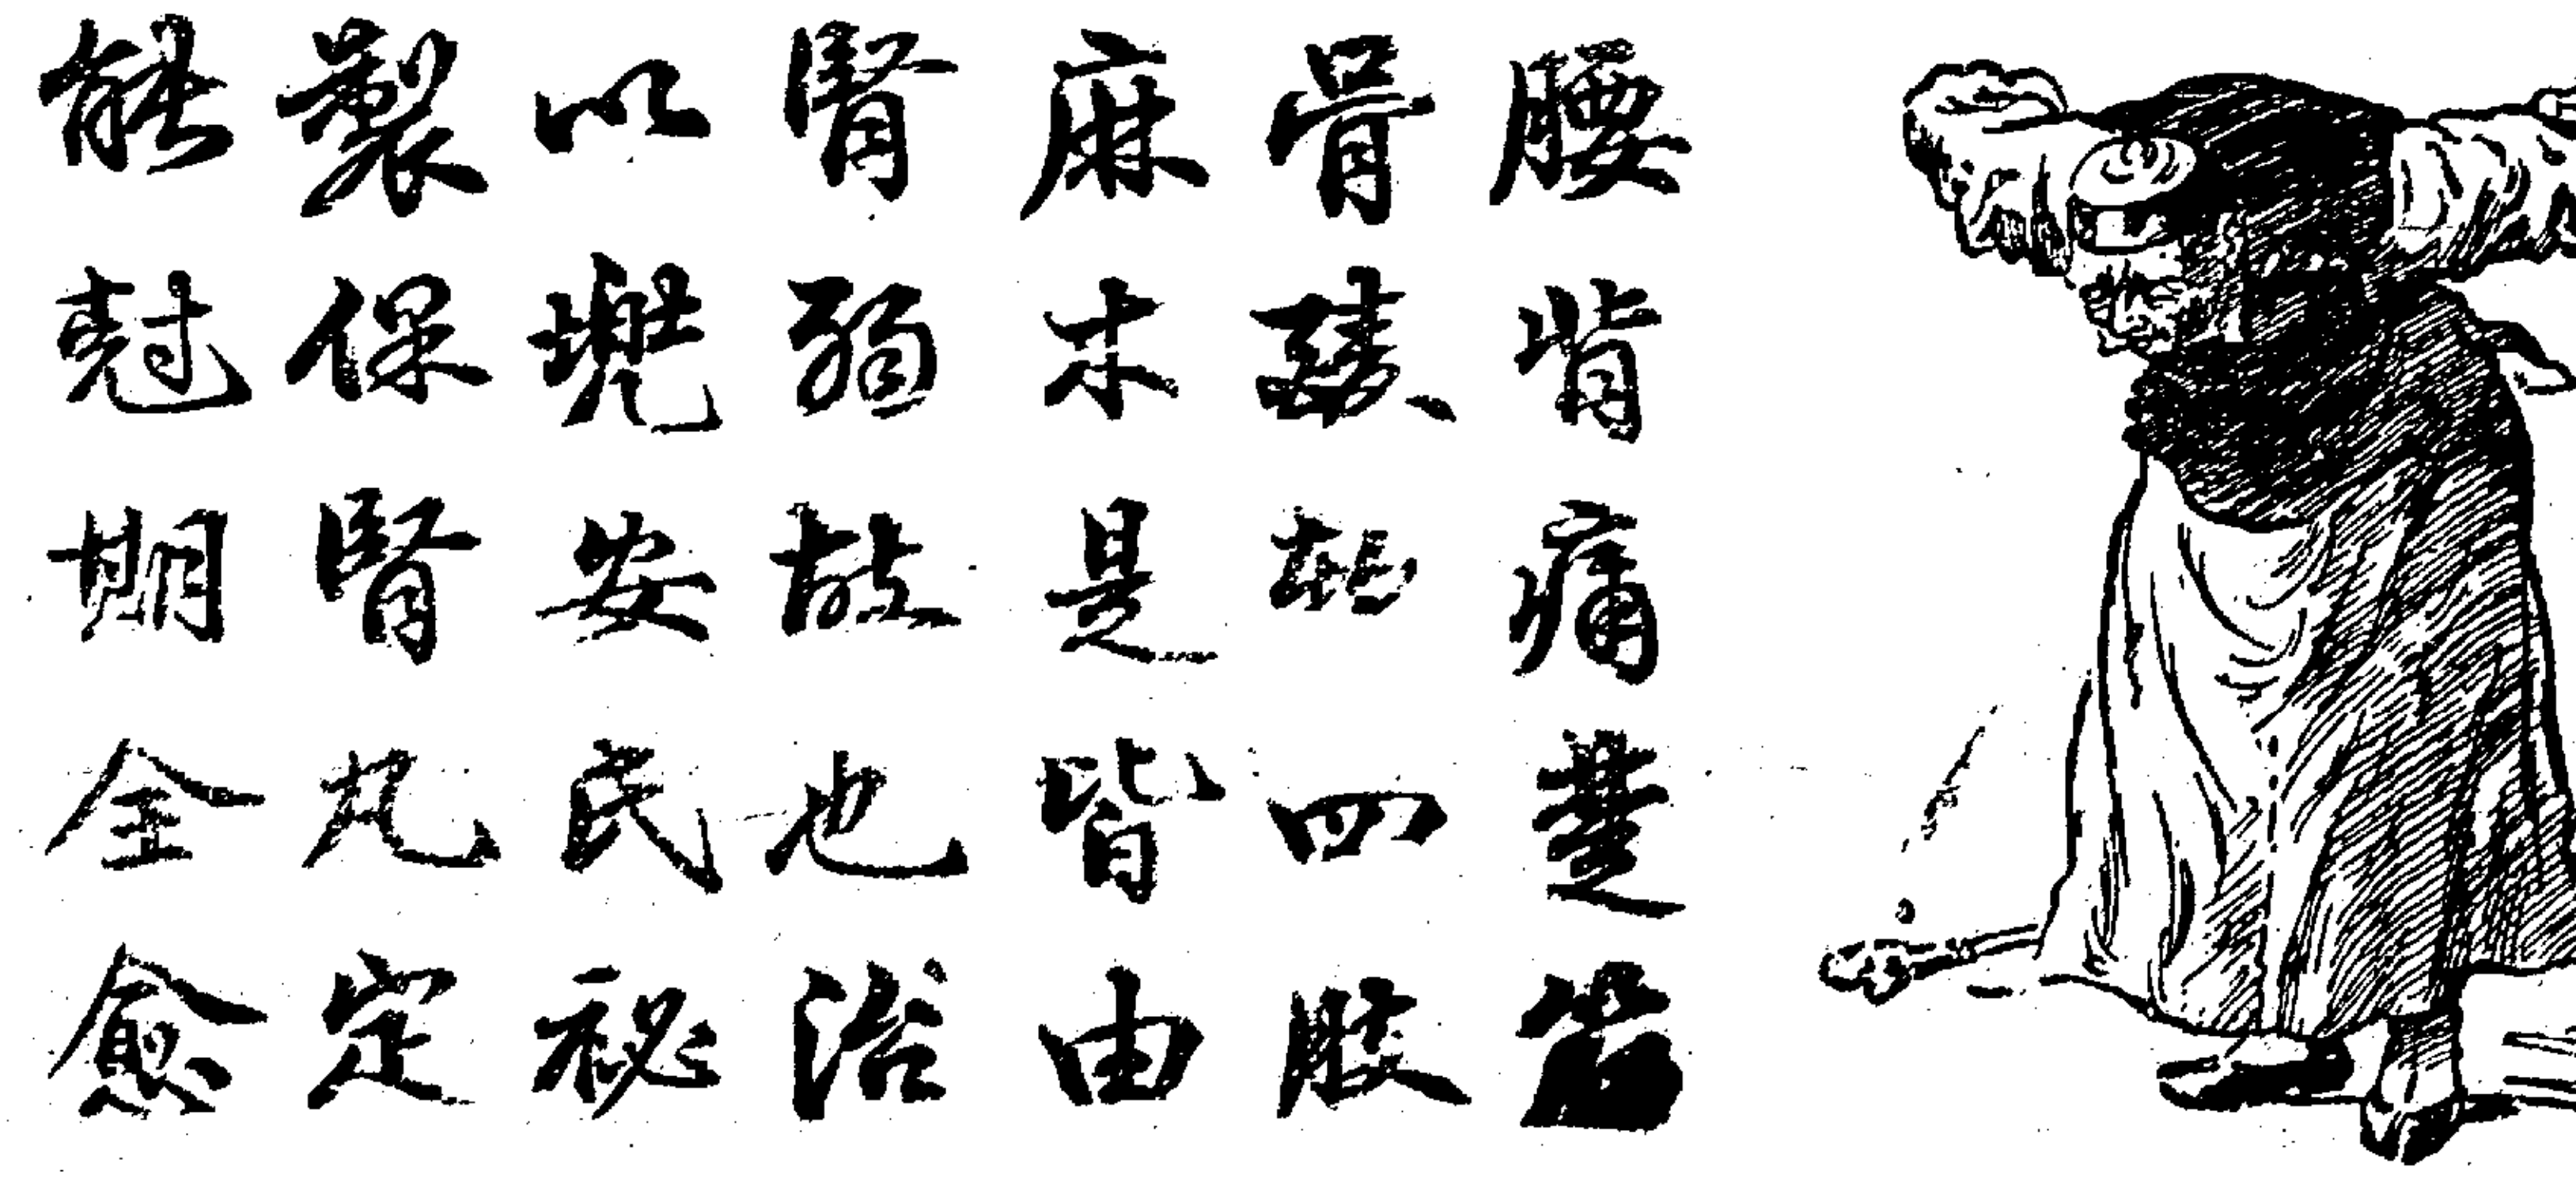 腰背痛楚筋
骨四肢
麻木是皆由
腎弱故也治
以兜安氏秘
製保腎丸定
能尅期全愈